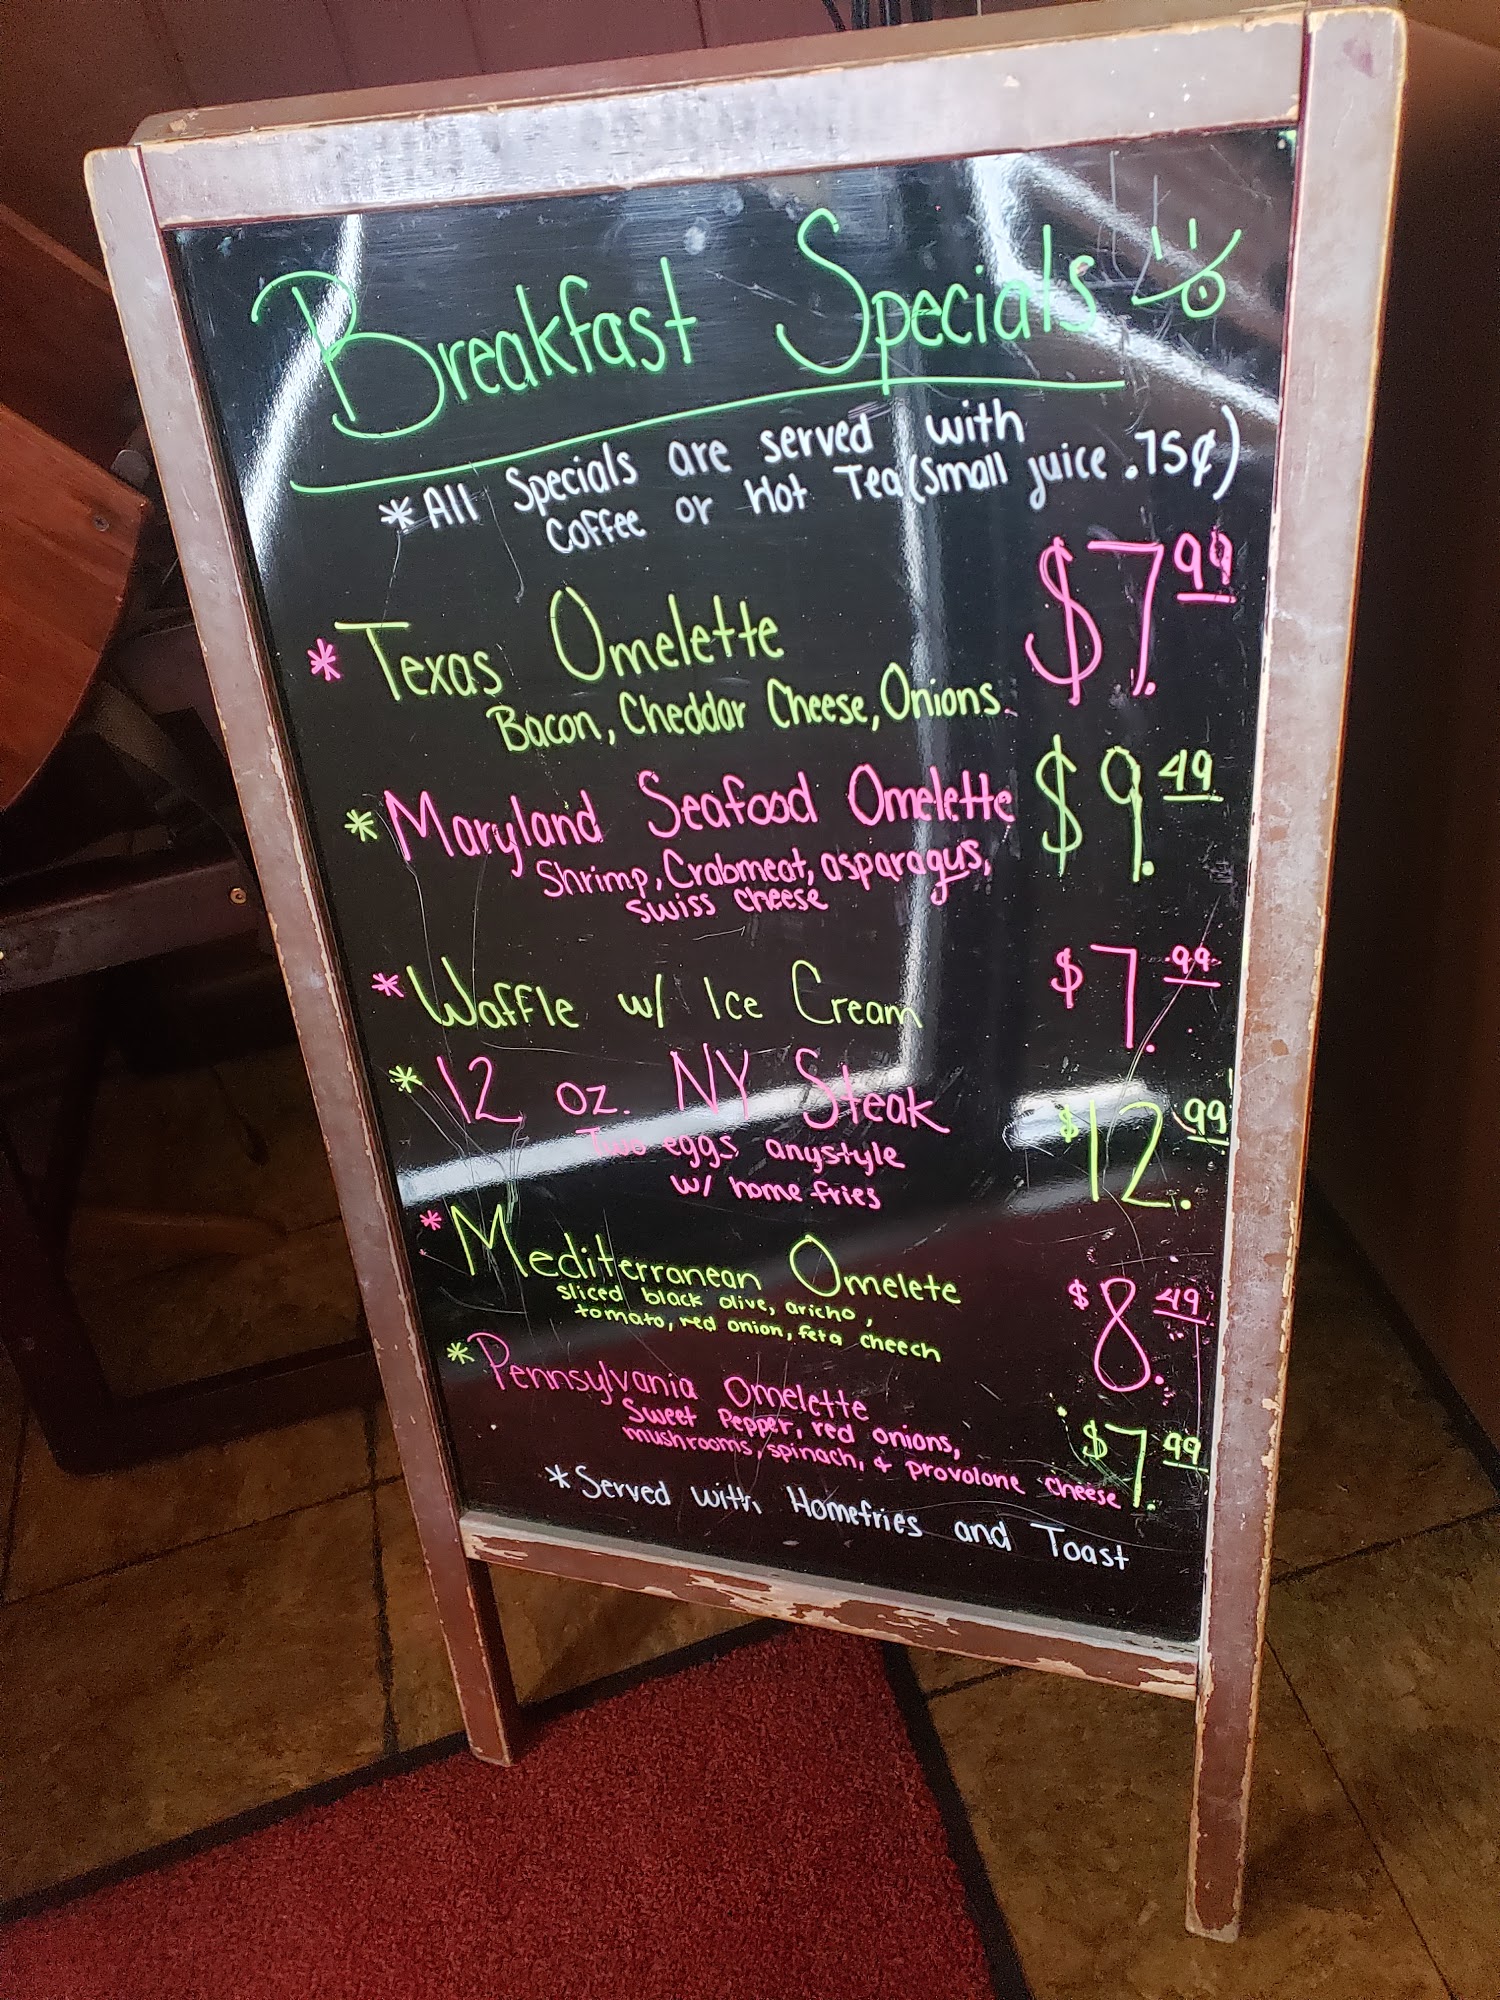 Breakfast Specials
*All Specials are served with
Coffee or Hot Tea (Small juice .75¢)
*Texas Omelette $7.99
Bacon, Cheddar Cheese, Onions
*Maryland Seafood Omelette $9.49
Shrimp, Crabmeat, asparagus,
swiss cheese
*Waffle w/ Ice Cream $7.99
*12 oz. NY Steak $12.99
Two eggs anystyle
w/ home fries
*Mediterranean Omelete $8.49
sliced black olive, aricho,
tomato, red onion, feta cheech
*Pennsylvania Omelette $7.99
Sweet Pepper, red onions,
mushrooms, spinach, & provolone cheese
*Served with Homefries and Toast